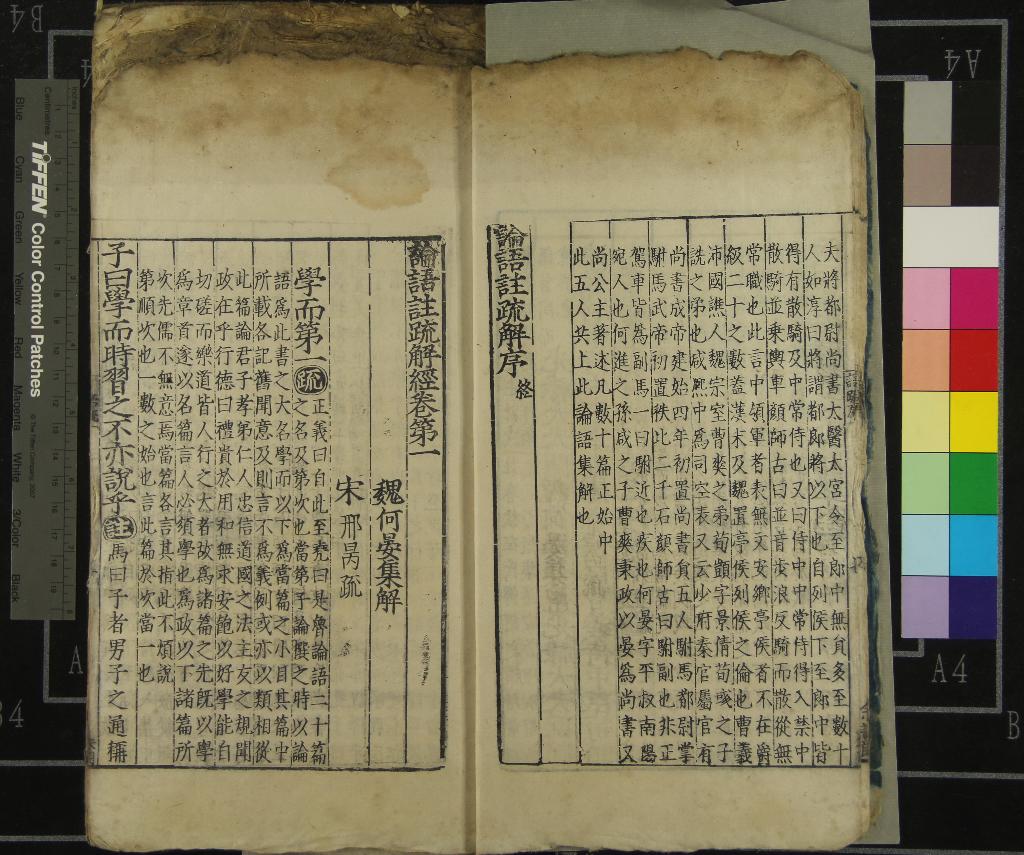 夫將都尉尚書太醫太官令至郎中無員多至數十
人如淳曰將謂都郎將以下也自列侯下至郎中皆
得有散騎及中常侍也又曰侍中中常侍得入禁中
散騎並乘輿車顔師古曰並音步浪反騎而散從無
常職也此言中領軍者表無文安鄉亭侯者不在爵
級二十之數蓋漢末及魏置亭侯列侯之倫也曹羲
沛國譙人魏宗室曹爽之弟荀顗字景倩荀彧之子
詵之弟也咸熙中爲司空表又云少府秦官屬官有
尚書成帝建始四年初置尚書員五人駙馬都尉掌
駙馬武帝初置秩比二千石顔師古曰駙副也非正
駕車皆爲副馬一曰駙近也疾也何晏字平叔南陽
宛人也何進之孫咸之子曹爽秉政以晏爲尚書又
尚公主著述凡數十篇正始中
此五人共上此論語集解也
論語註疏解序 終
論語註疏解經卷第一
魏何晏集解
宋邢昺疏
學而第一 疏 正義曰自此至堯曰是魯論語二十篇
之名及第次也當弟子論撰之時以論
語爲此書之大名學而以下爲當篇之小目其篇中
所載各記舊聞意及則言不爲義例或亦以類相從
此篇論君子孝弟仁人忠信道國之法主友之規聞
政在乎行德曰禮貴於用和無求安飽以好學能自
切磋而樂道皆人行之大者故爲諸篇之先既以學
爲章首遂以名篇言人必須學也爲政以下諸篇所
次先儒不無意焉當篇各言其指此不煩說
第順次也一數之始也言此篇於次當一也
子曰學而時習之不亦說乎 註 馬曰子者男子之通稱
TIFFEN Color Control Patches
© The Tiffen Company, 2007
Centimetres
Inches
Blue Cyan Green Yellow Red Magenta White 3/Color Black
B4
A4
A4
B